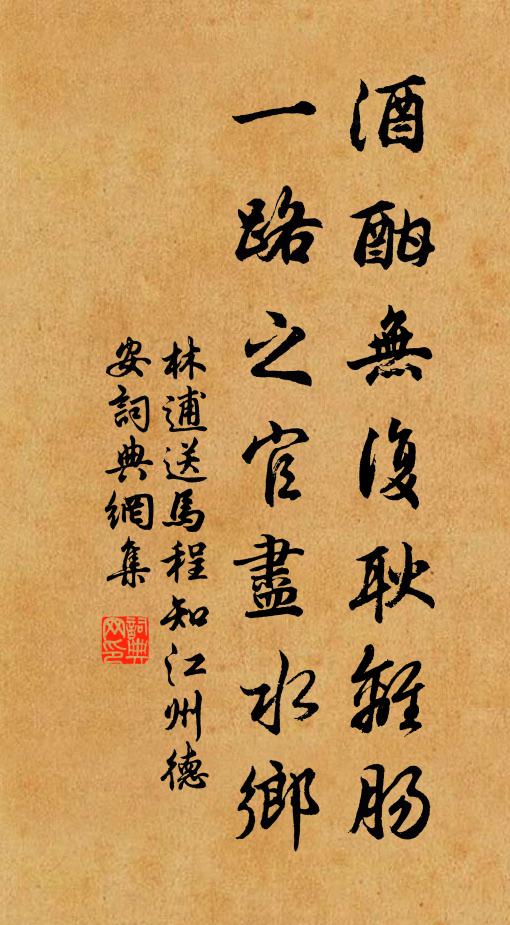 酒酣無復耿離腸
一路之官盡水鄉
林逋送馬程知江州德
安詞典網集
詞典網印